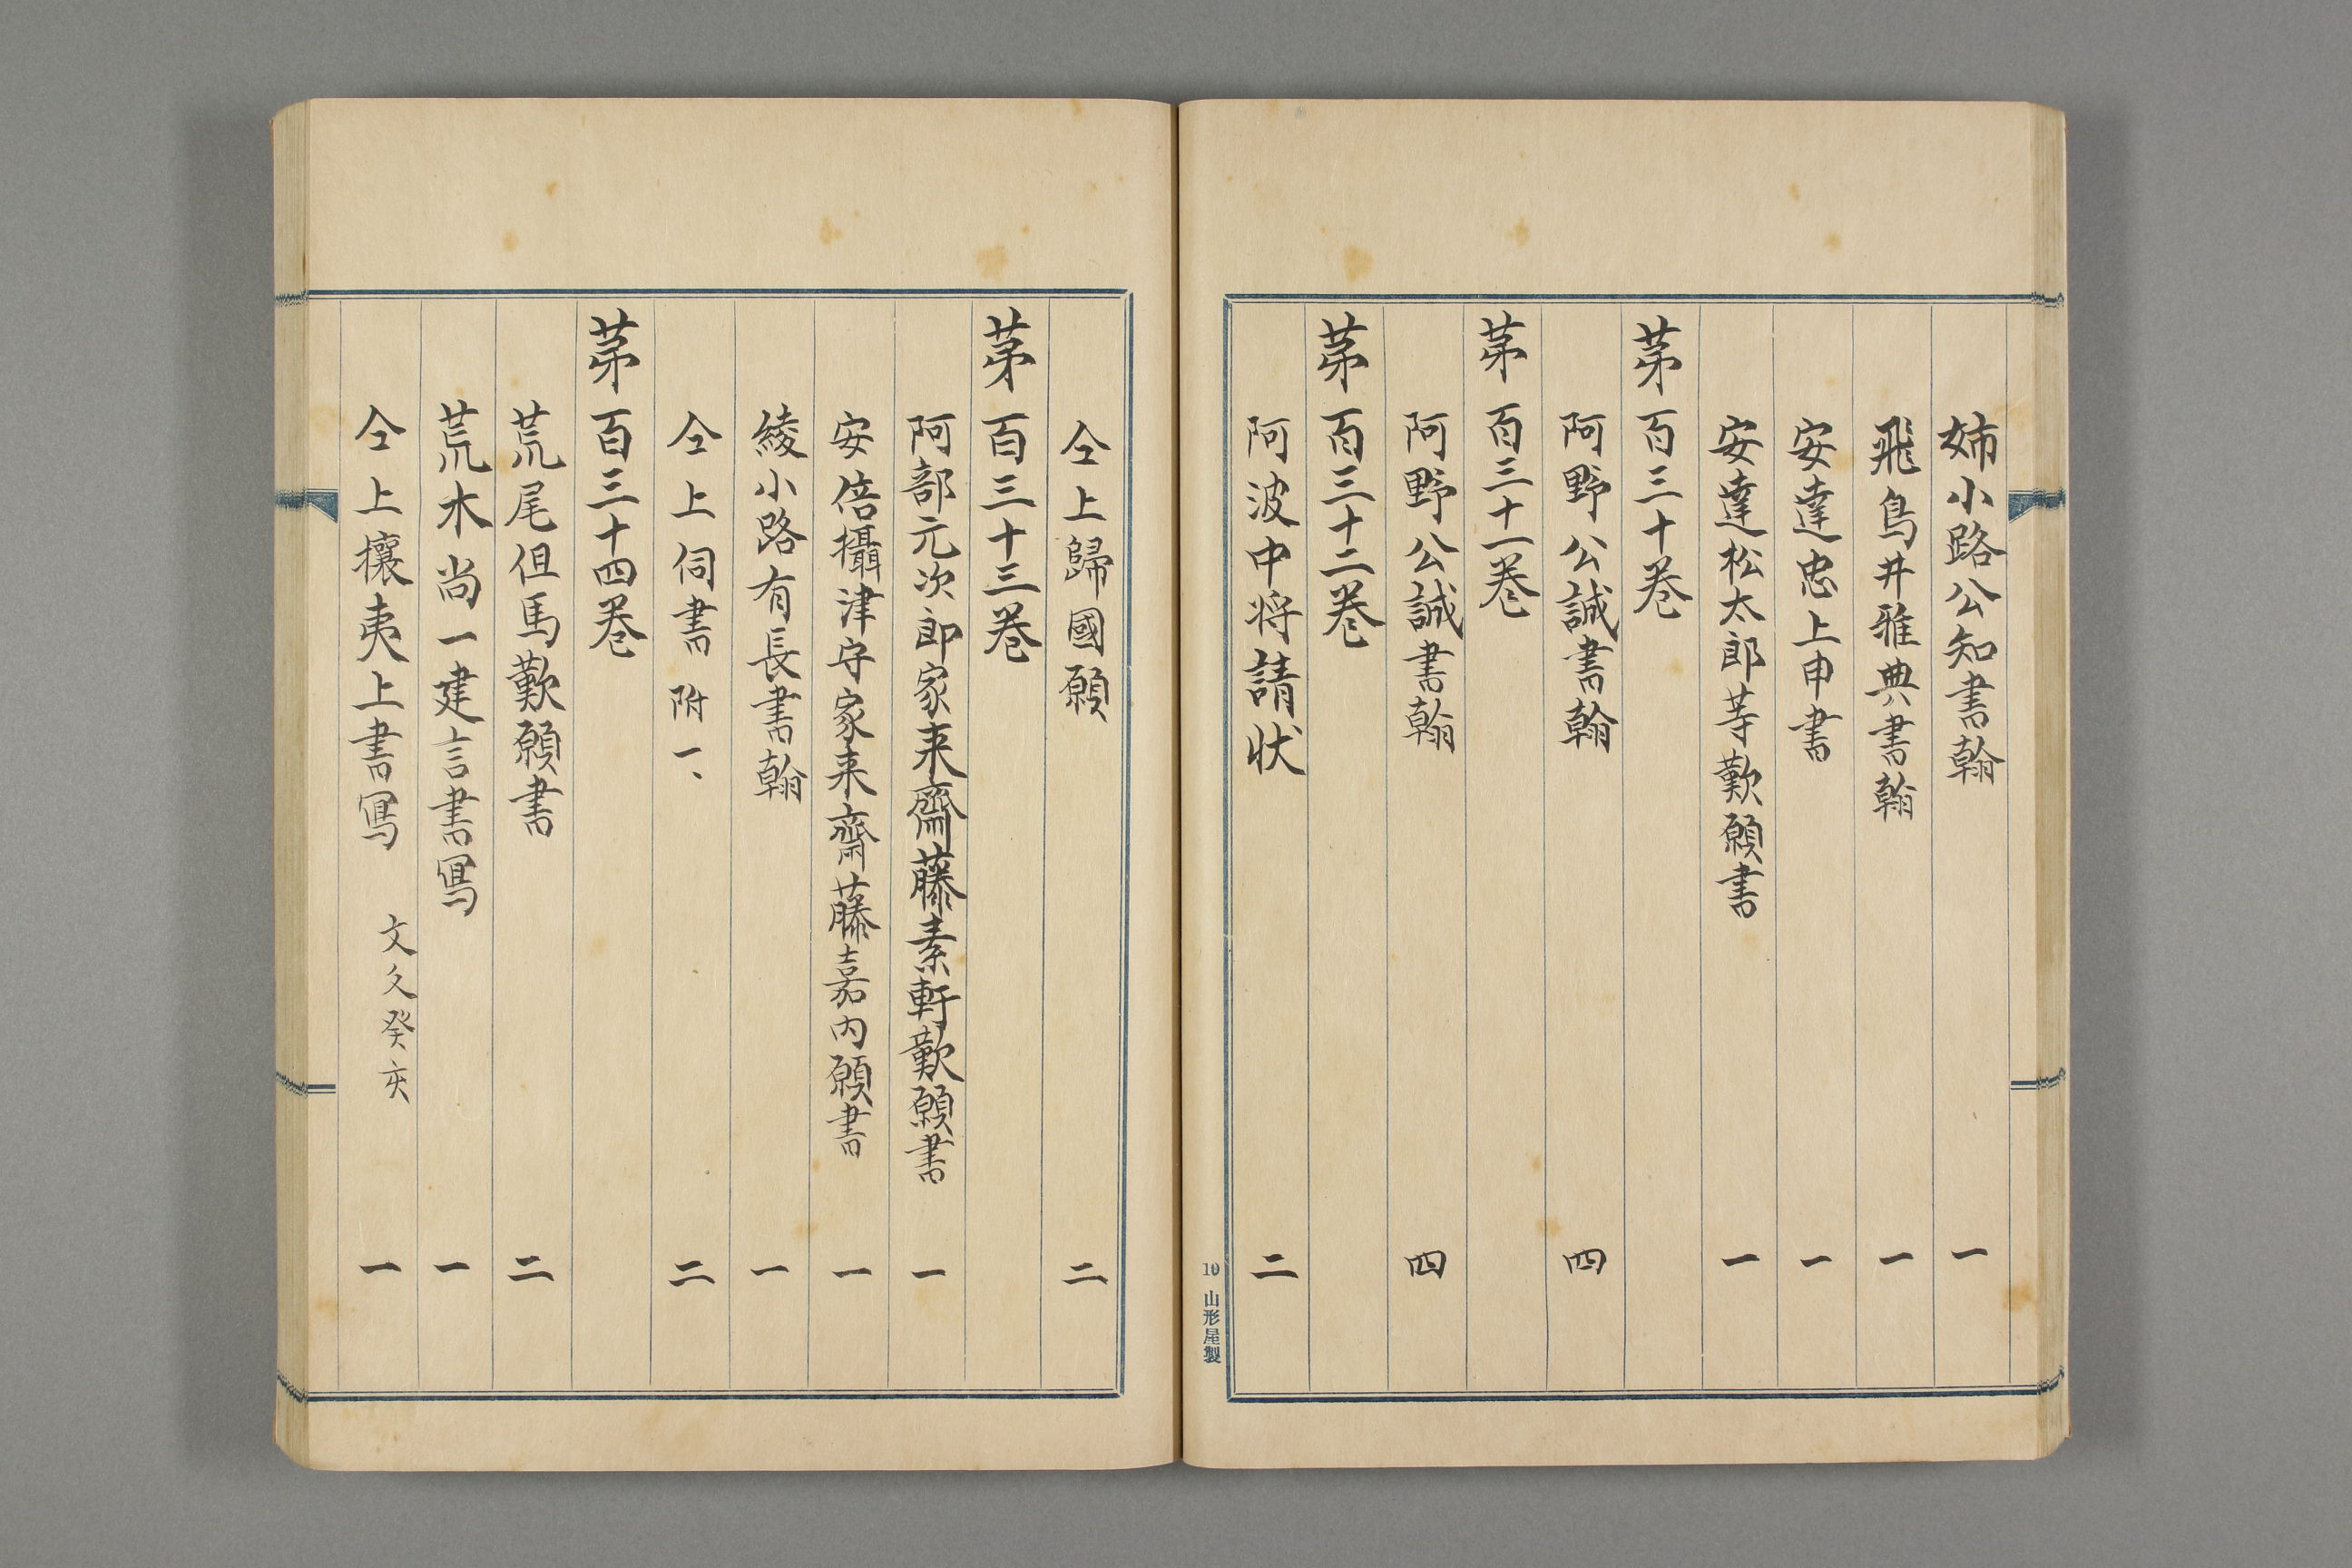 姉小路公知書翰 一
飛鳥井雅典書翰 一
安達忠上申書 一
安達松太郎等歎願書 一
苐百三十巻
阿野公誠書翰 四
苐百三十一巻
阿野公誠書翰 四
苐百三十二巻
阿波中将請状 二
10 山形屋製
仝上歸國願 二
苐百三十三巻
阿部元次郎家来齋藤素軒歎願書 一
安倍攝津守家来齋藤嘉内願書 一
綾小路有長書翰 一
仝上伺書 附一、 二
苐百三十四巻
荒尾但馬歎願書 二
荒木尚一建言書寫 一
仝上攘夷上書寫 文久癸亥 一